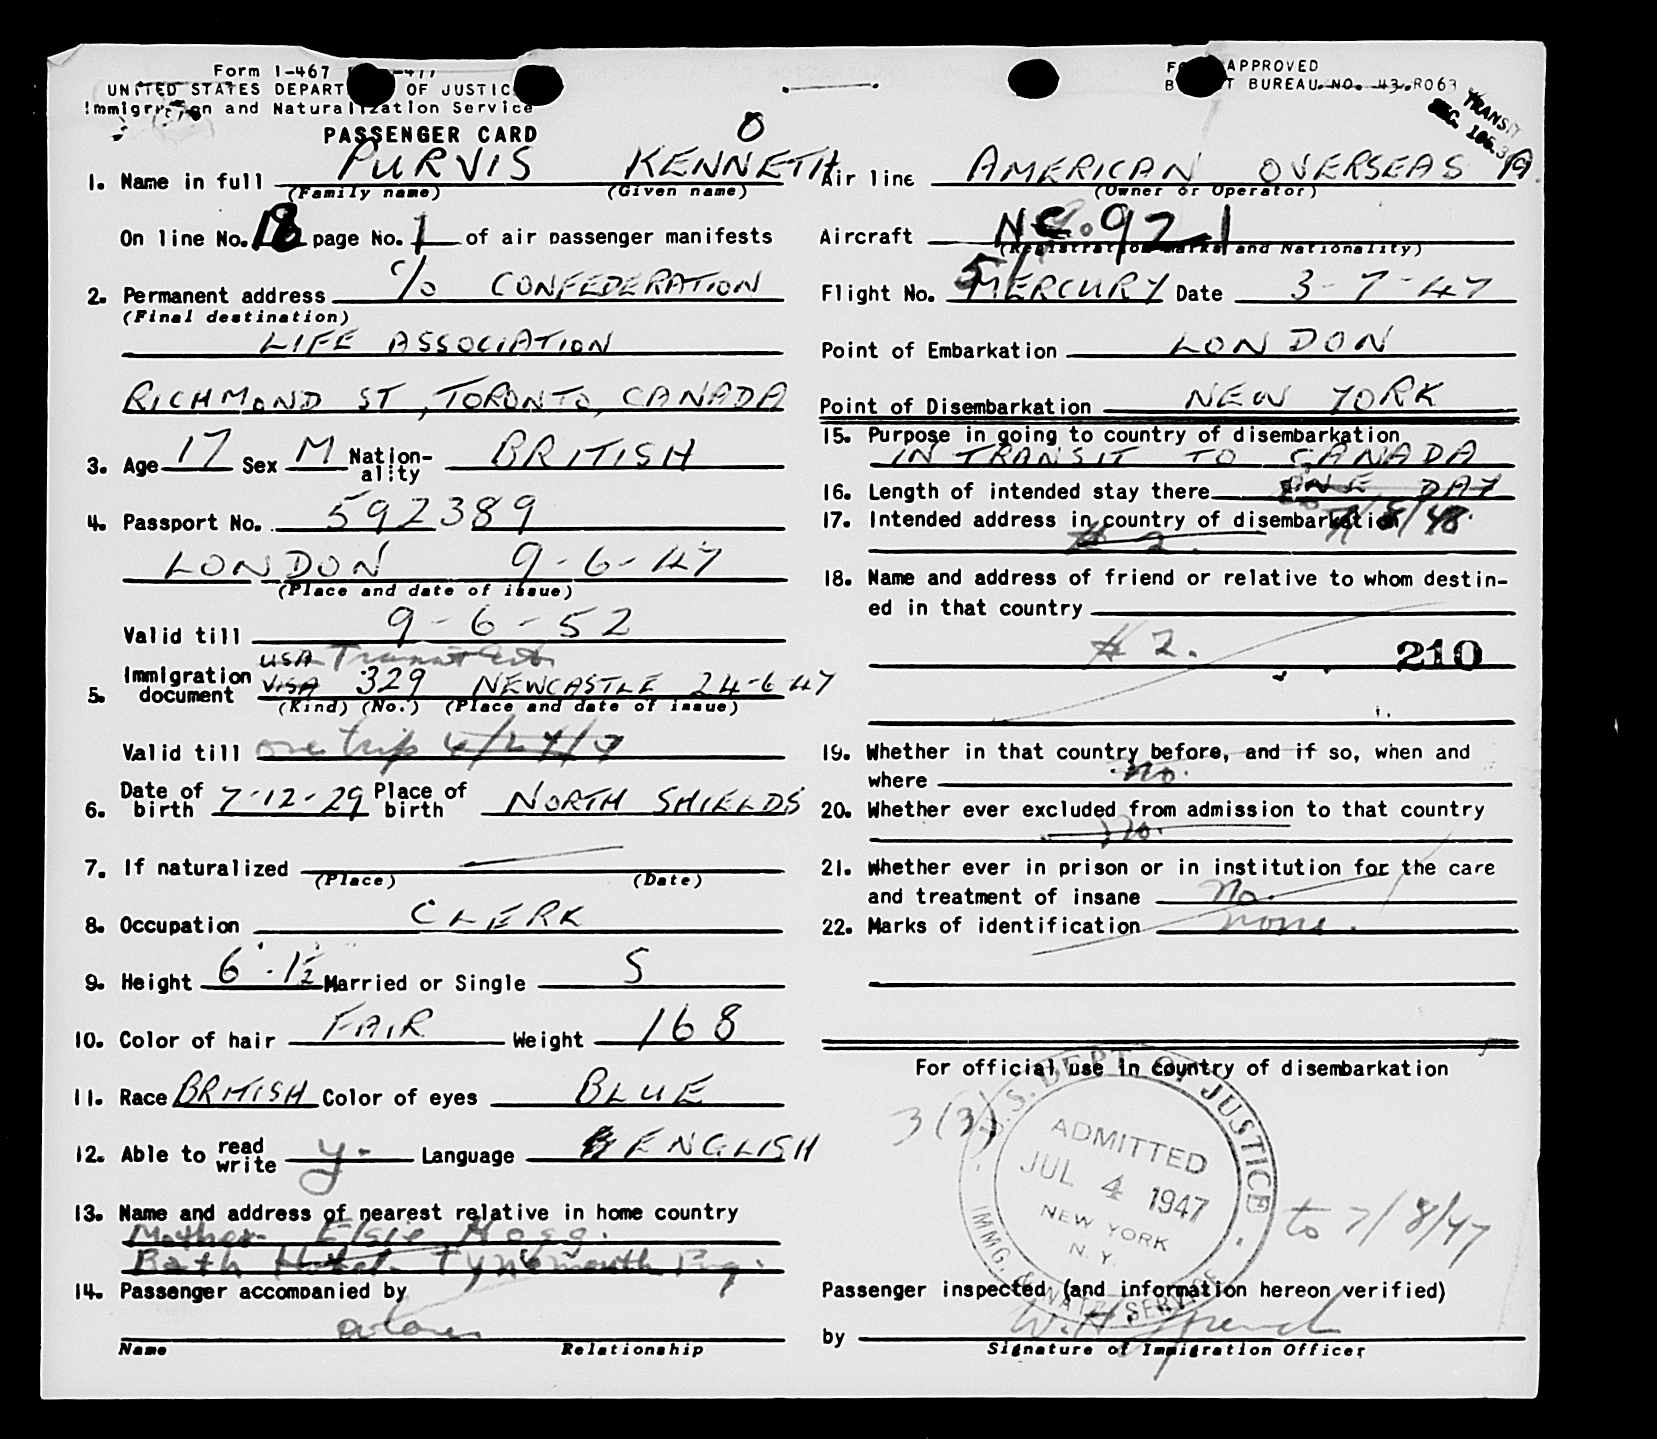 Form I-467
UNITED STATES DEPART OF JUSTIC
Immigr n and Naturalization Service
PASSENGER CARD
O
1. Name in full PURVIS KENNETH
(Family name) (Given name)
On line No. 18 page No. 1 of air passenger manifests
2. Permanent address c/o CONFEDERATION
(Final destination)
LIFE ASSOCIATION
RICHMOND ST, TORONTO, CANADA
3. Age 17 Sex M Nation-ality BRITISH
4. Passport No. 592389
LONDON 9-6-47
(Place and date of issue)
Valid till 9-6-52
USA Transit
5. Immigration document VISA 329 NEWCASTLE 24-6-47
(Kind) (No.) (Place and date of issue)
Valid till one trip
6. Date of birth 7-12-29 Place of birth NORTH SHIELDS
7. If naturalized
(Place) (Date)
8. Occupation CLERK
9. Height 6'-1½ Married or Single S
10. Color of hair FAIR Weight 168
11. Race BRITISH Color of eyes BLUE
12. Able to read write y. Language ENGLISH
13. Name and address of nearest relative in home country
Mother Elsie Hogg.
Bath Hotel Tynemouth Eng.
14. Passenger accompanied by
alone
Name Relationship
APPROVED
T BUREAU NO. 43-R063
TRANSIT
SEC. 186.3
Air line AMERICAN OVERSEAS
(Owner or Operator)
Aircraft NC.921
(Registration marks and Nationality)
Flight No. MERCURY Date 3-7-47
Point of Embarkation LONDON
Point of Disembarkation NEW YORK
15. Purpose in going to country of disembarkation
IN TRANSIT TO CANADA
16. Length of intended stay there ONE DAY
17. Intended address in country of disembarkation
# 2.
18. Name and address of friend or relative to whom destin-
ed in that country
# 2.
210
19. Whether in that country before, and if so, when and
where no.
20. Whether ever excluded from admission to that country
no.
21. Whether ever in prison or in institution for the care
and treatment of insane no.
22. Marks of identification none.
For official use in country of disembarkation
3(3)
U.S. DEPT. OF JUSTICE
ADMITTED
JUL 4 1947
NEW YORK
N.Y.
IMMG. & NATZ. SERVICE
to 7/8/47
Passenger inspected (and information hereon verified)
by W.H.
Signature of Immigration Officer